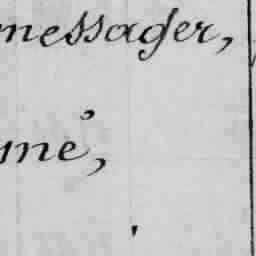 messager,
me,